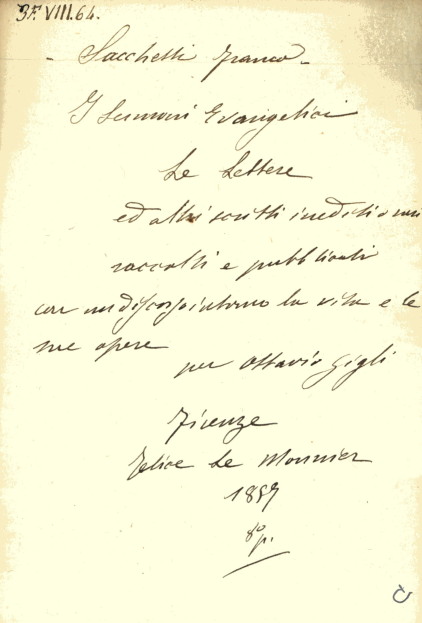 3F. VIII. 64.
- Sacchetti Franco -
I Sermoni Evangelici
Le Lettere
ed altri scritti inediti o rari
raccolti e pubblicati
con un discorso intorno la vita e le
sue opere
per Ottavio Gigli
Firenze
Felice Le Monnier
1857
8° p.